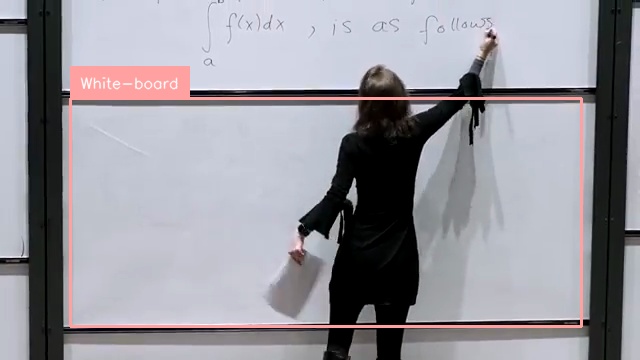 ∫_a^b f(x)dx , is as follows
White-board